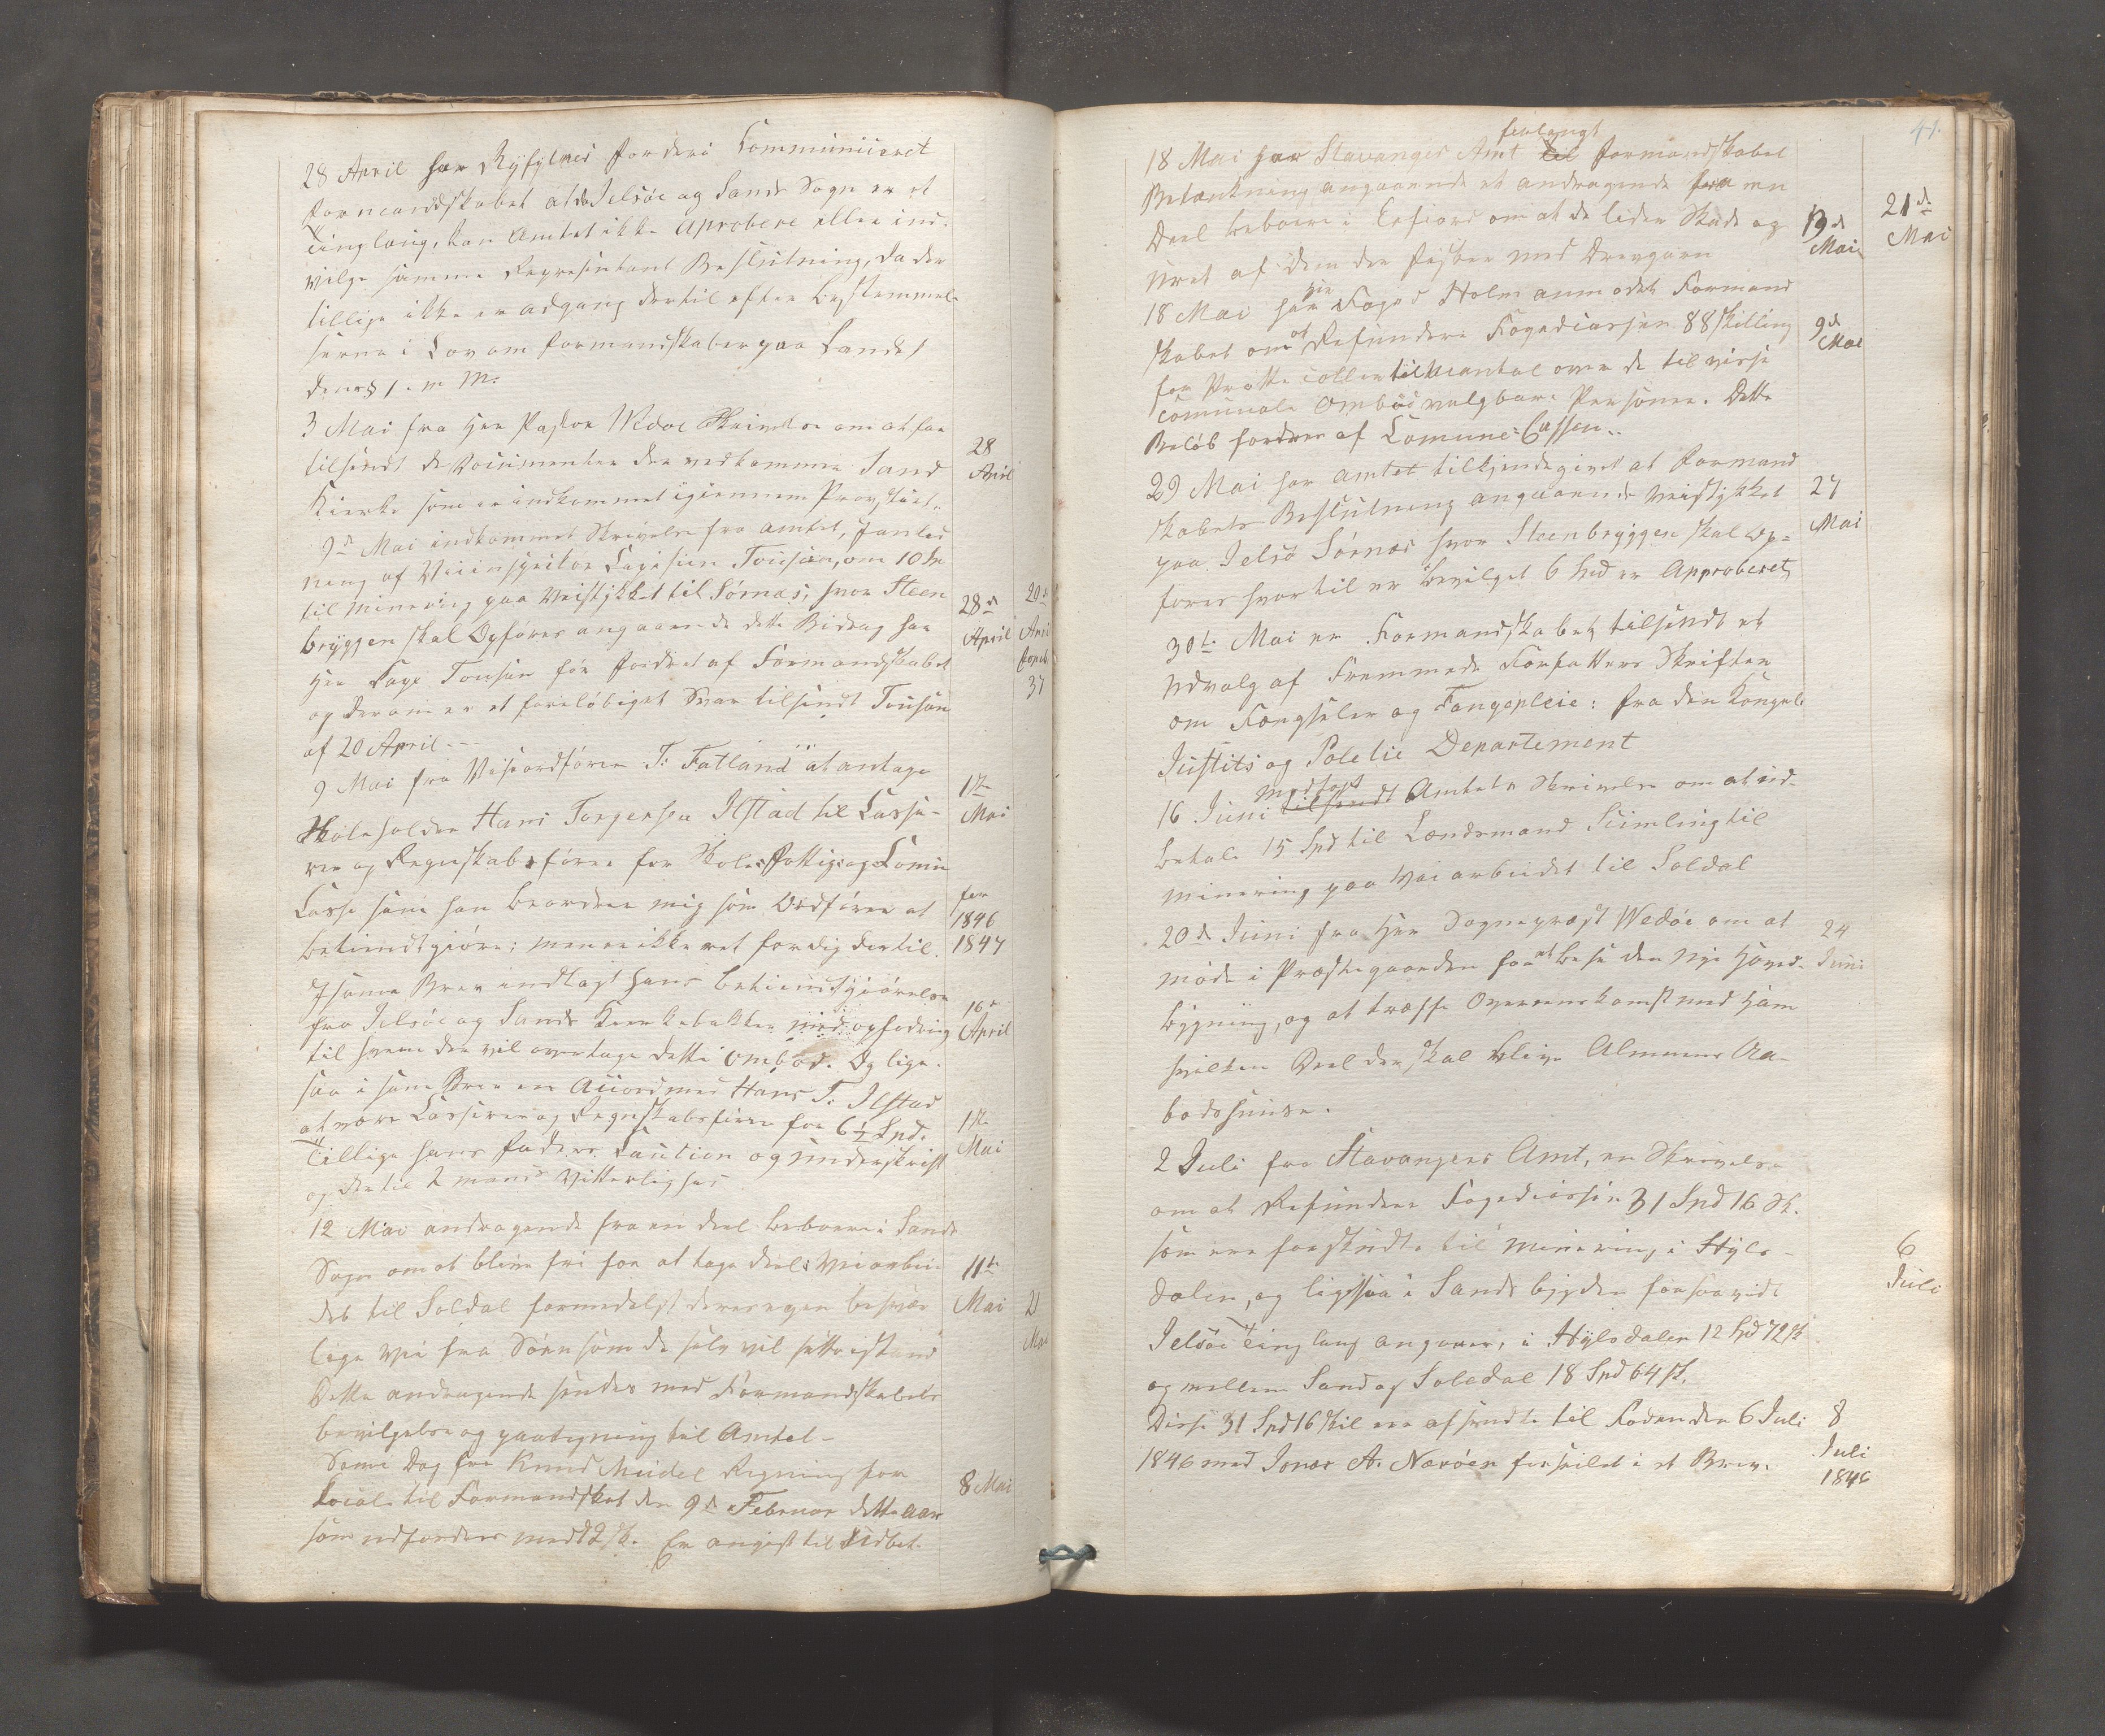 28 April har Ryfylkes Foderi Communiceret
Formandskabet at da Jelsöe og Sands Sogn er et
Tinglaug, kan Amtet ikke Aprobere eller ind-
vilge samme Repræsentant Beslutning, da der
tillige ikke er adgang dertil efter Bestemmel-
serne i Lov om Formandskaber paa Landet
dens § 1. m M.
3 Mai fra Her Pastor Wedöe Skrivelse om at faa
tilsendt de Documenter der vedkomme Sand
Kierke som er indkommet igiennem Provstiet..
28
April
9de Mai indkommet Skrivelse fra Amtet, Janled
ning af Veiinspektor Tousien, om 10 Sp
til Minering paa Veistykket til Sörnæs; hvor Steen
bryggen skal Opföres angaaende dette Bidrag har
Her Tousen för fordret af Formandskabet
og derom er et forelöbiget Svar tilsendt Tousen
af 20 April---
28de
April
20de
Apri
37
9 Mai fra Viseordförer T: Fatland at antage
Skoleholder Hans Torgersen Ilstad til Casse-
rer og Regnskabsförer for Skole, Fattig og Comu
Casse samt han beordrer mig som Ordförer at
bekiendtgiöre; men er ikke ret fordig dertil.
1ste
Mai
for
1846
1847
I same Brev indlagt hans bekiendtgiörelse
fra Jelsöe og Sands Kierkebakker med opfodring
til hvem der vil overtage dette Ombod. Og lige-
saa i same Brev en Accord med Hans T: Ilstad
at være Casserer og Regnskabsförer for 6½ Spd.
Tillige hans Faders Caution og underskrift
og dertil 2 mands Vitterlighed
16de
April
1ste
Mai
12 Mai andragende fra en deel beboere i Sands
Sogn om at blive fri for at tage deel i Veiarbei-
det til Soldal formedelst deres egen besvær
lige Vei fra Sören som de selv vil sætte istand
Dette andragende sendes med Formandskabets
bevilgelse og paategning til Amtet-
11te
Mai
21
Mai
Same Dag fra Knud Meidel Regning for
Locale til Formandskabet den 9de Februar dette Aar
som udfordres med 72 sk. Er anvist til Udbet.
8 Mai
41.
forlangt
18 Mai har Stavanger Amt til Formandskabet
Betænkning angaaende et andragende fra en
Deel beboere i Erfiord om at de lider Skade og
Uret af Dem der fisker med Drevgarn
19de
Mai
21de
Mai
18 Mai har Her Foged Holm anmodet Formand
skabet om at Refundere Fogedcassen 88 skilling
for Prottecoller til Mantal over de til visse
comunale Ombud valgbare Personer. Dette
Belöb fordres af Comune-Cassen..
9de
Mai
29 Mai har Amtet tilkjendegivet at Formand
skabets Beslutning angaaende Veistykket
paa Jelsö Sörnæs hvor Steenbryggen skal Op=
föres hvortil er bevilget 6 Spd er Approberet,
27
Mai
30te Mai er Formandskabet tilsendt et
Udvalg af Fremmede Forfatters Skrifter
om Fængseler og Fangepleie: fra den Kongel.
Justits og Poletie Departement
modtaget
16 Juni tilsendt Amtets Skrivelse om at ud-
betale 15 Spd til Lændsmand Seimling til
Minering paa Veiarbeidet til Soldal
20de Juni fra Her Sognepræst Wedöe om at
möde i Præstegaarden for at bese den nye Hoved-
bygning, og at træffe Overenskomst med Ham
hvilken Deel der skal blive Almenn Aa-
bodshuuse.
24
Juni
2 Juli fra Stavangers Amt, en Skrivelse
om at Refundere Fogedcassen 31 Spd 16 Sk.
som ere forskudte til Minering i Hyls-
dalen, og ligesaa i Sands bygden forsaavidt
Jelsöe Tinglaug angaaer, i Hylsdalen 12 Spd 72 sk
og mellem Sand og Soledal 18 Spd 64 sk.
6
Juli
Disse 31 Spd 16 Skil ere afsendte til Foden den 6 Juli
1846 med Jonas A. Naröen forseilet i et Brev.
8
Juli
1846